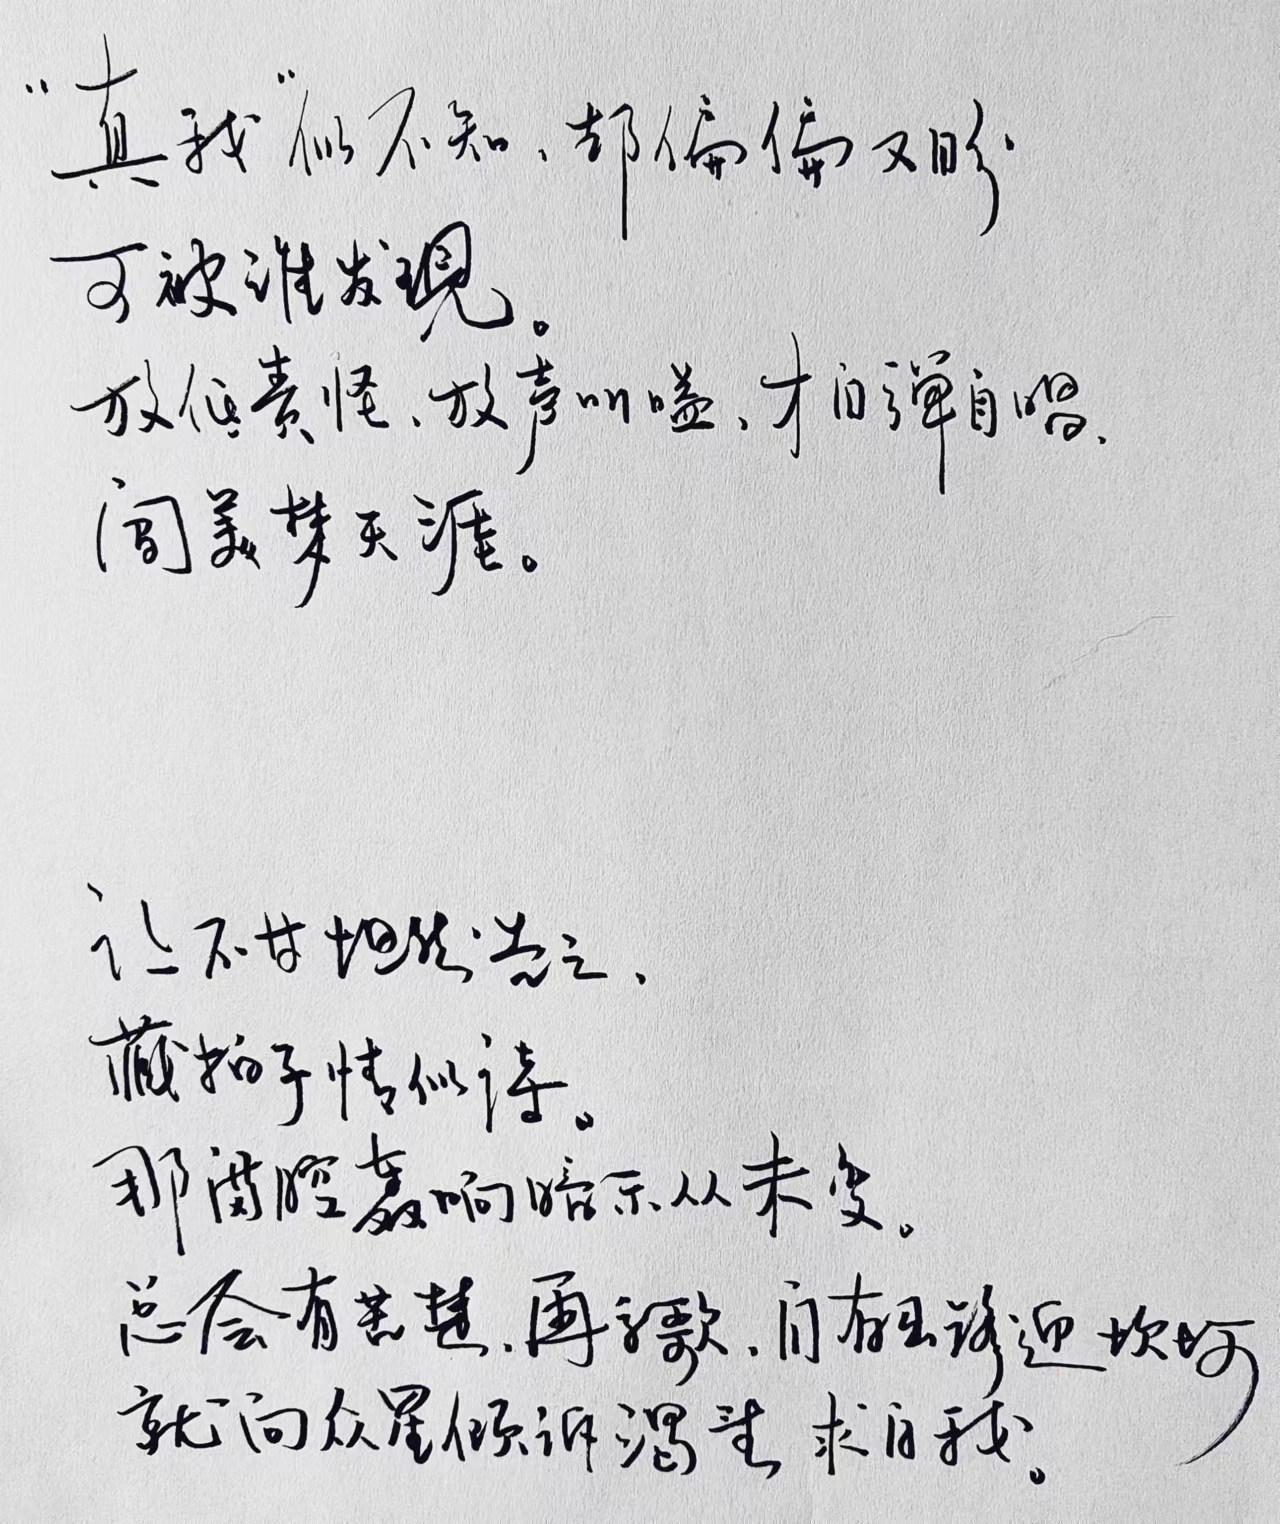 “真我”似不知、却偏偏又盼
可被谁发现。
放低责怪、放声叫嗌、才自弹自唱、
闯美梦天涯。
让不甘坦然告之、
藏拍子情似诗。
那满腔轰响暗示从未变。
总会有苦楚、再讴歌、自有出路迎坎坷
就向众星倾诉渴望 求自我。